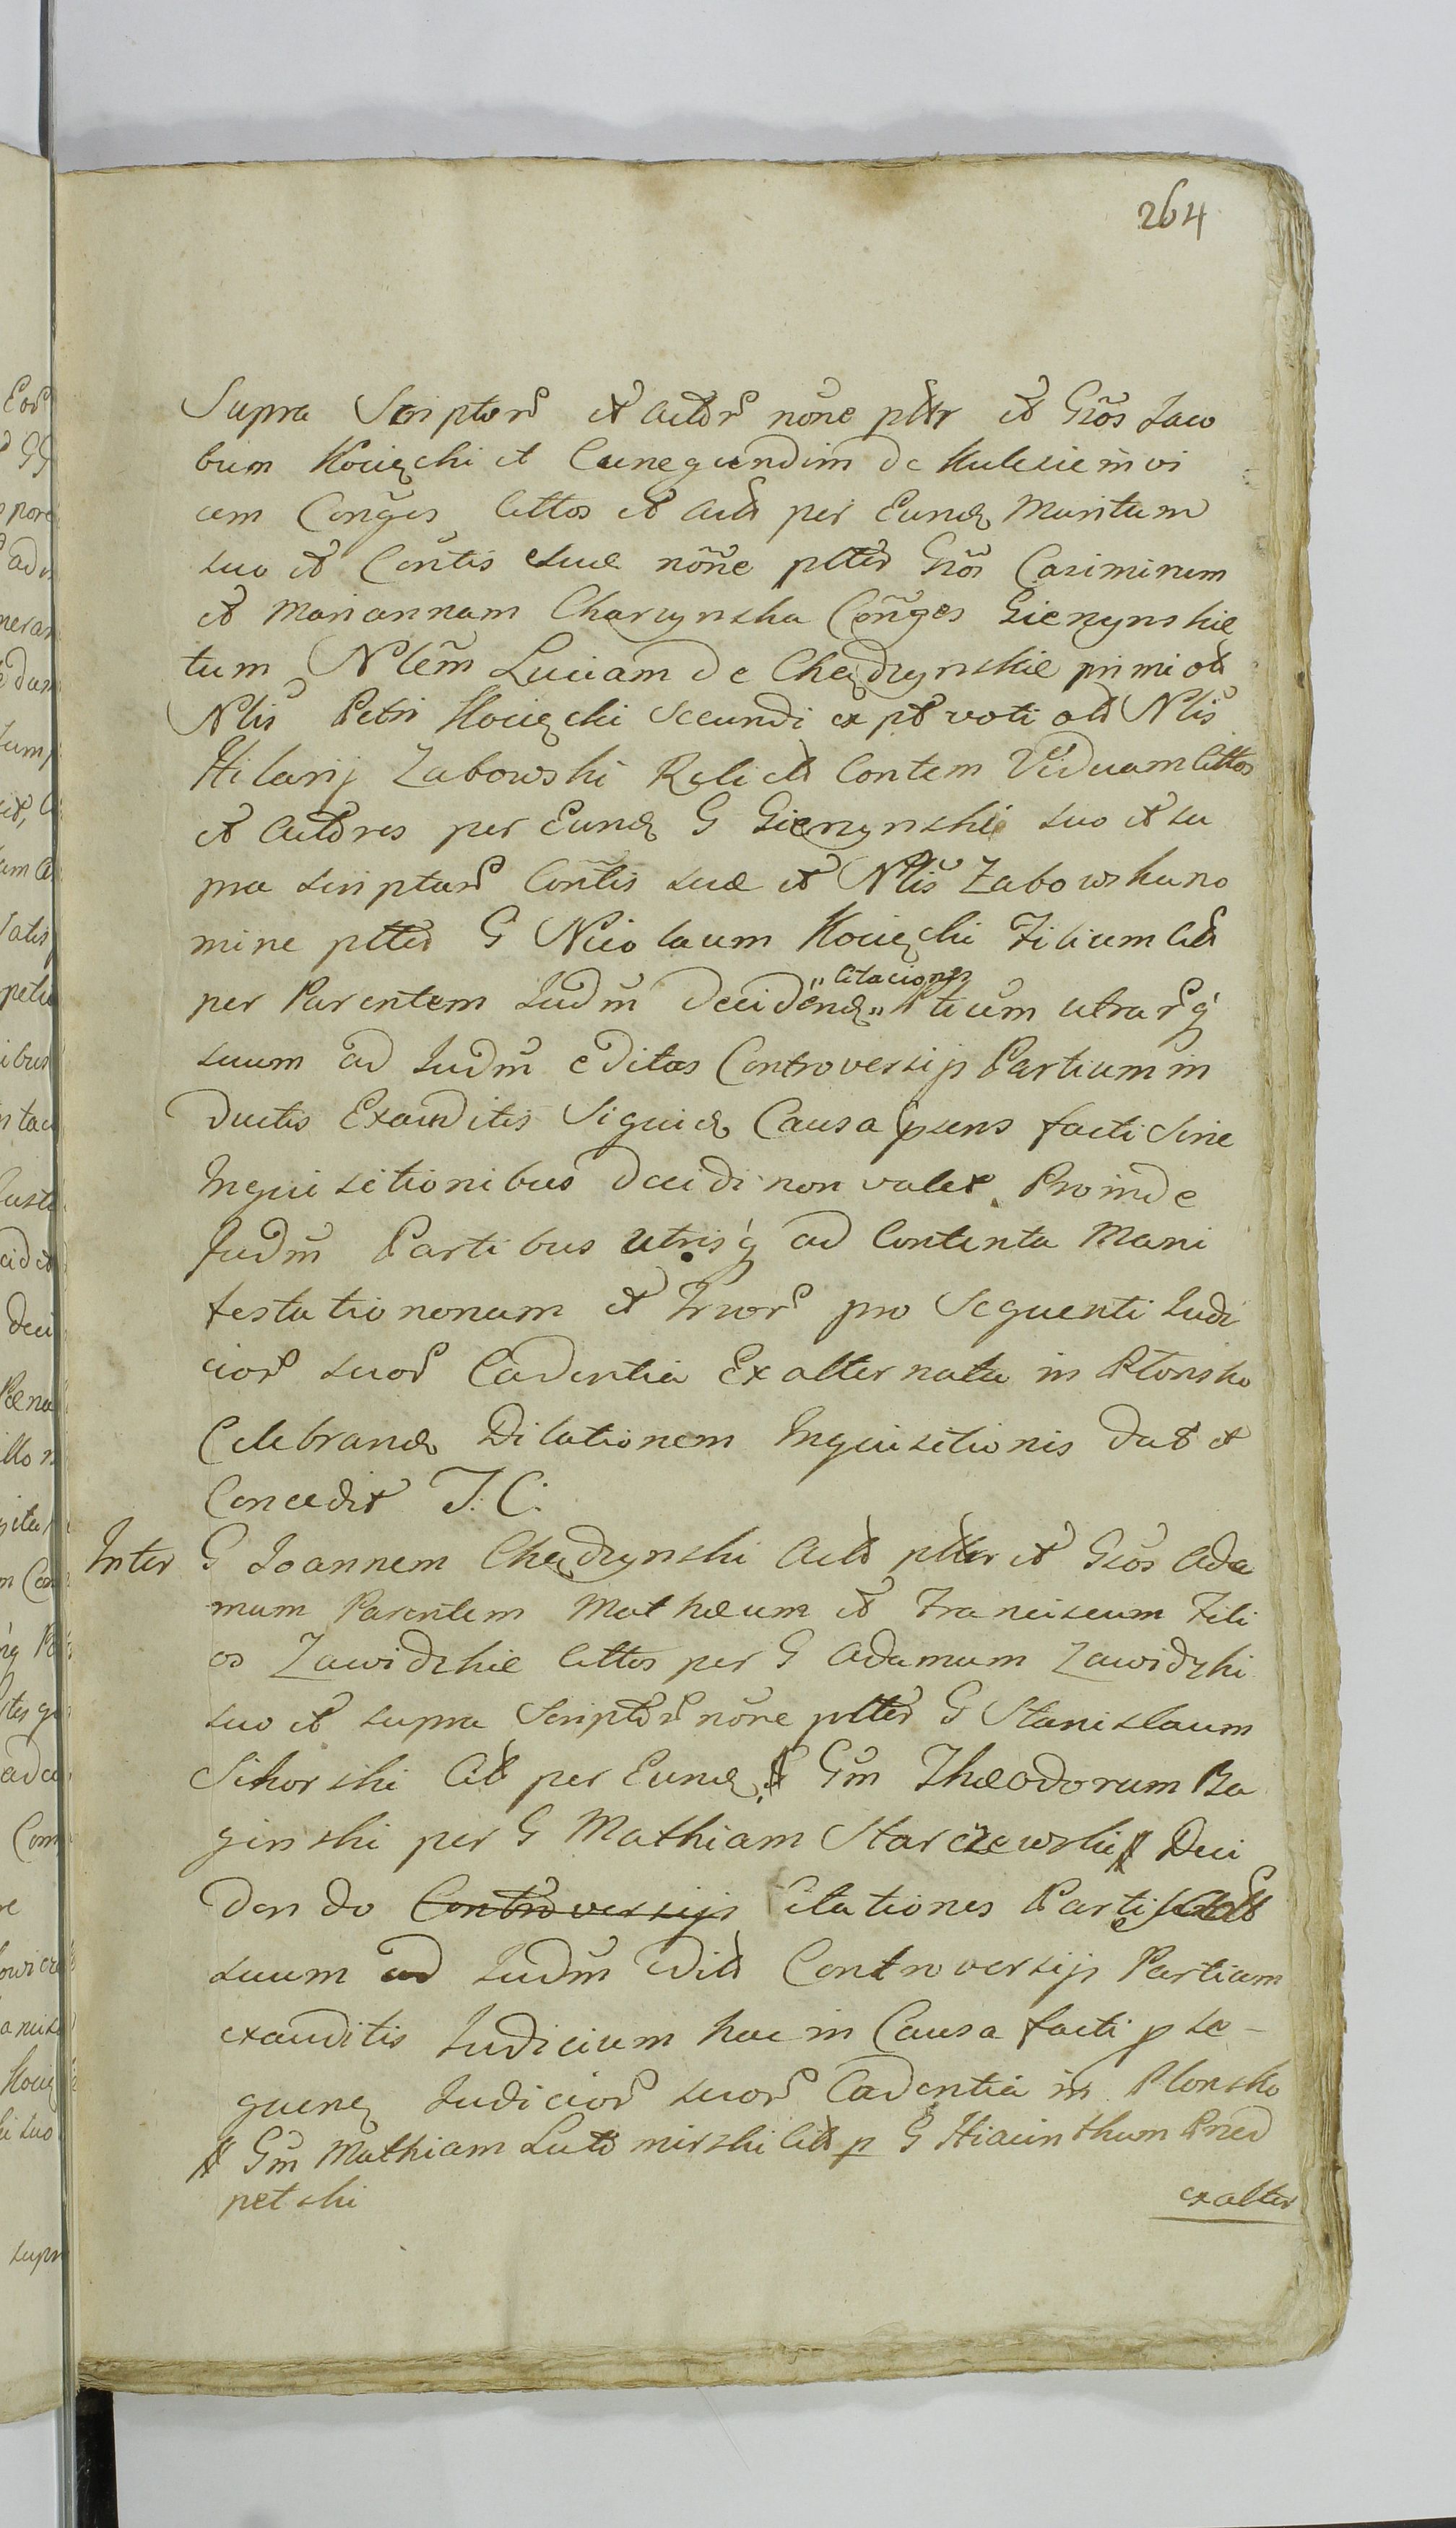 264
Supra Scriptorũ et actorũ nõne pltr et Gños Jaco
bum Kocięcki et Cunegundim de Kulesie invi
cem Conges Cittos et act per Eund Maritum
suo et Contis suæ nõne pltes Gños Casimirum
et Mariannam Charzynska Conges Gienzynskie
tum Nlem Luciam de Chądzynskie primi ol
Nlis Petri Kocięcki Secundi ex pt voti ol Nlis
Hilarij Zabowski Relict Contem Viduam Cittos
et actores per Eund G Gienzynski suo et su
pra scriptarũ Contis suæ et Nlis Zabowska no
mine pltes G Nicolaum Kocięcki Filium Cit
per Parentem Judm Decidend „Citaciones„ Ptium utrarũq
suum ad Judm editas Controversijs Partium in
ductis Exauditis Siquid Causa pñs facti sine
Inquisitionibus decidi non valet Proinde
Judm Partibus utrisq ad Contenta Mani
festationonum et Truor pro Sequenti Judi
ciorũ suorũ Cadentia Ex alternata in Płonsko
Celebrand Dilationem Inquisitionis Dat et
Concedit J. C.
Inter G Joannem Chądzynski Act pltr et Gños Ada
mum Parentem Mathæum et Franciscum Fili
os Zawidzkie Cittos per G Adamum Zawidzki
suo et supra Scriptorũ nõne pltes G Stanislaum
Sikorski Cit per Eund # Gm Theodorum Ba
ginski per G Mathiam Starczewski # Deci
den do Controversijs Citationes Partis
suum ad Judm Edit Controversijs Partium
exauditis Judicium hac in Causa facti p se-
quend Judiciorũ suorũ Cadentia in Płonsko
# Gm Mathiam Luto mirski Cit p G Hiacinthum Pred
petski
exalter